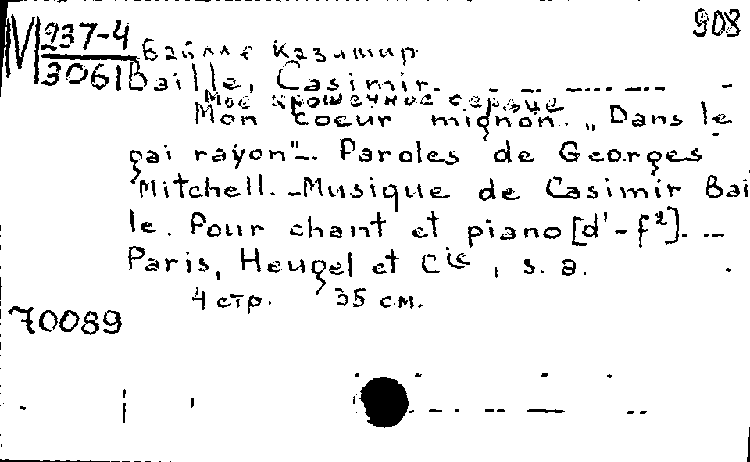 908
М 237-4
3061
Байлле Казимир
Baille, Casimir.
Мое крошечное сердце
Mon coeur mignon. „Dans le
gai rayon". Paroles de Georges
Mitchell. - Musique de Casimir Bai
le. Pour chant et piano [d¹-f²]. --
Paris, Heugel et Cie, s. a.
4 стр. 35 см.
70089